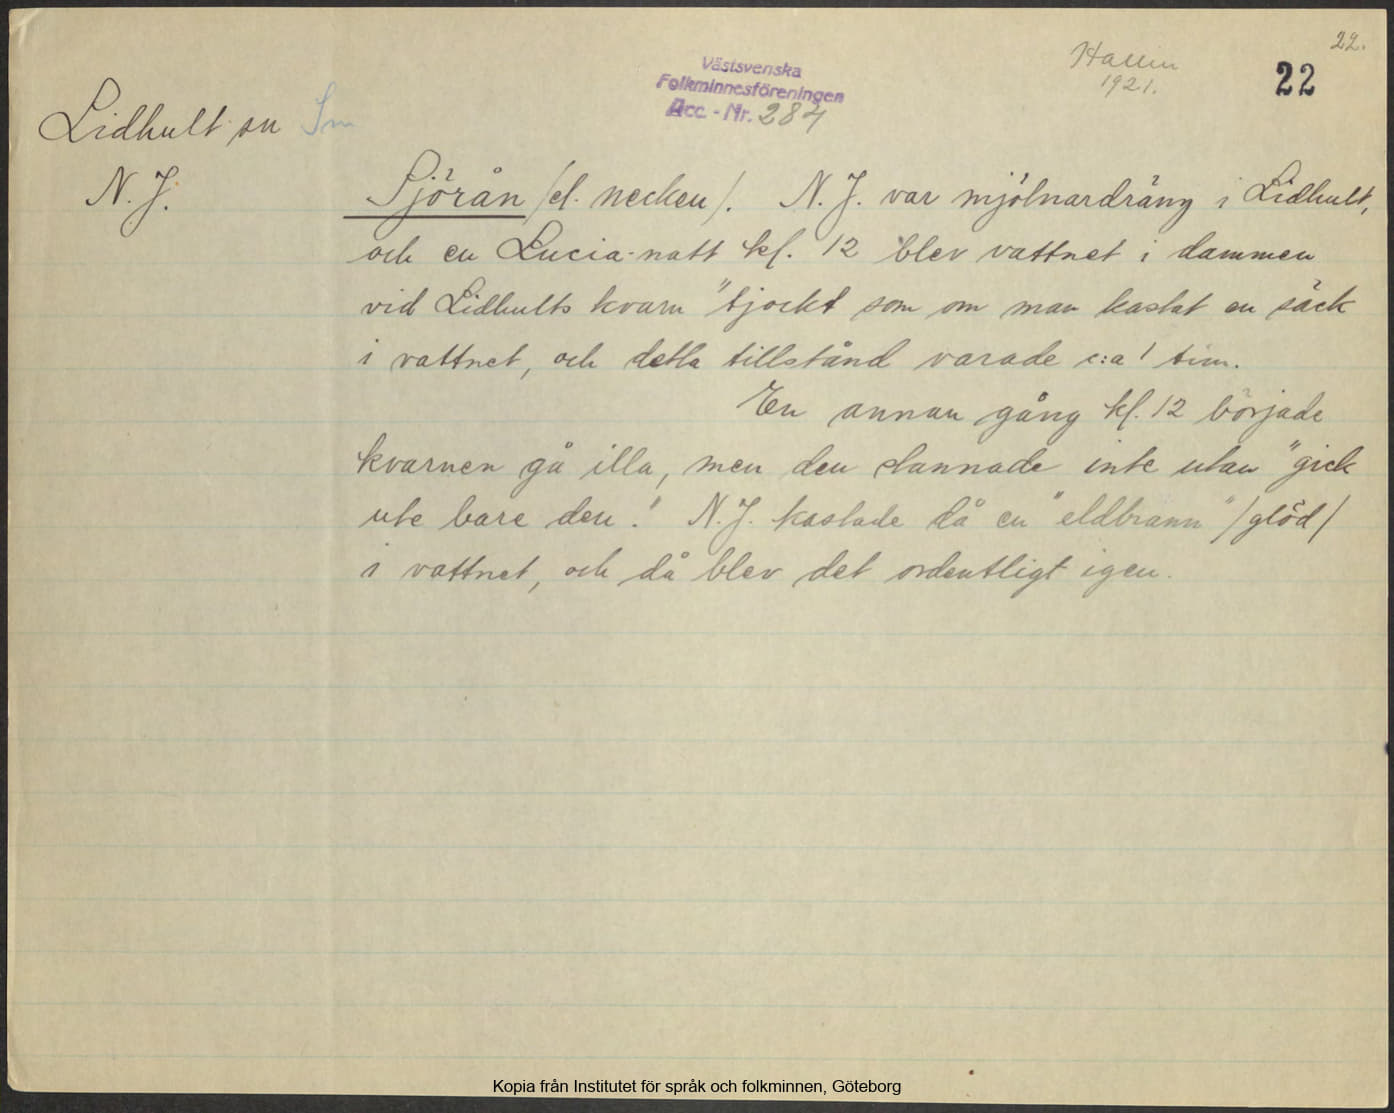 22.
Hallin
1921.
22
Västsvenska
Folkminnesföreningen
Acc. - Nr. 284
Lidhult sn Sm
N. J.
Sjörån /el. necken/. N. J. var mjölnardräng i Lidhult,
och en Lucia-natt kl. 12 blev vattnet i dammen
vid Lidhults kvarn "tjockt som om man kastat en säck
i vattnet, och detta tillstånd varade c:a 1 tim.
En annan gång kl. 12 började
kvarnen gå illa, men den stannade inte utan "gick
ute bare den." N. J. kastade då en "eldbrann" /glöd/
i vattnet, och då blev det ordentligt igen.
Kopia från Institutet för språk och folkminnen, Göteborg